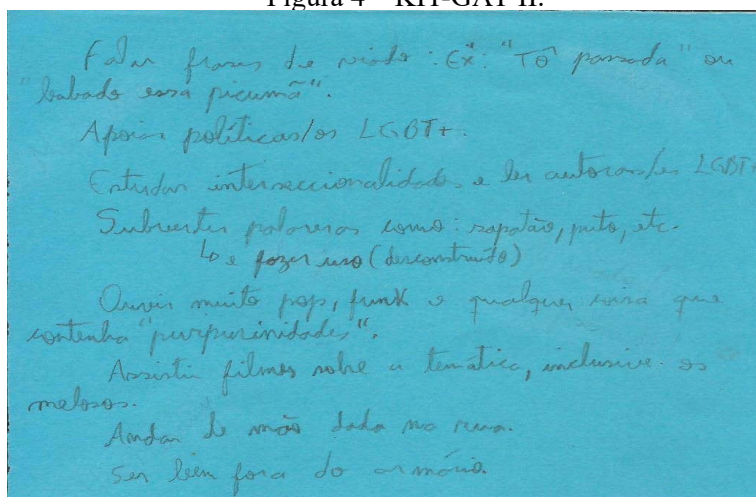 Figura 4 – KIT-GAY II.
Falar frases de viado: Ex: "TÔ passada" ou
"babado essa picumã".
Apoiar políticas/os LGBT+.
Estudar interseccionalidades e ler autoras/es LGBT+
Subverter palavras como: sapatão, puto, etc.
↳ e fazer uso (desconstruído)
Ouvir muito pop, funk e qualquer coisa que
contenha "purpurinidades".
Assistir filmes sobre a temática, inclusive os
melosos.
Andar de mão dada na rua.
Ser bem fora do armário.